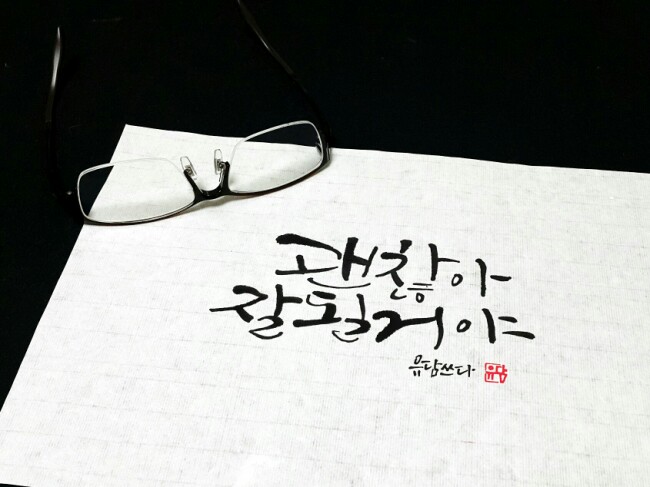 괜찮아
잘될거야
유담쓰다
유담